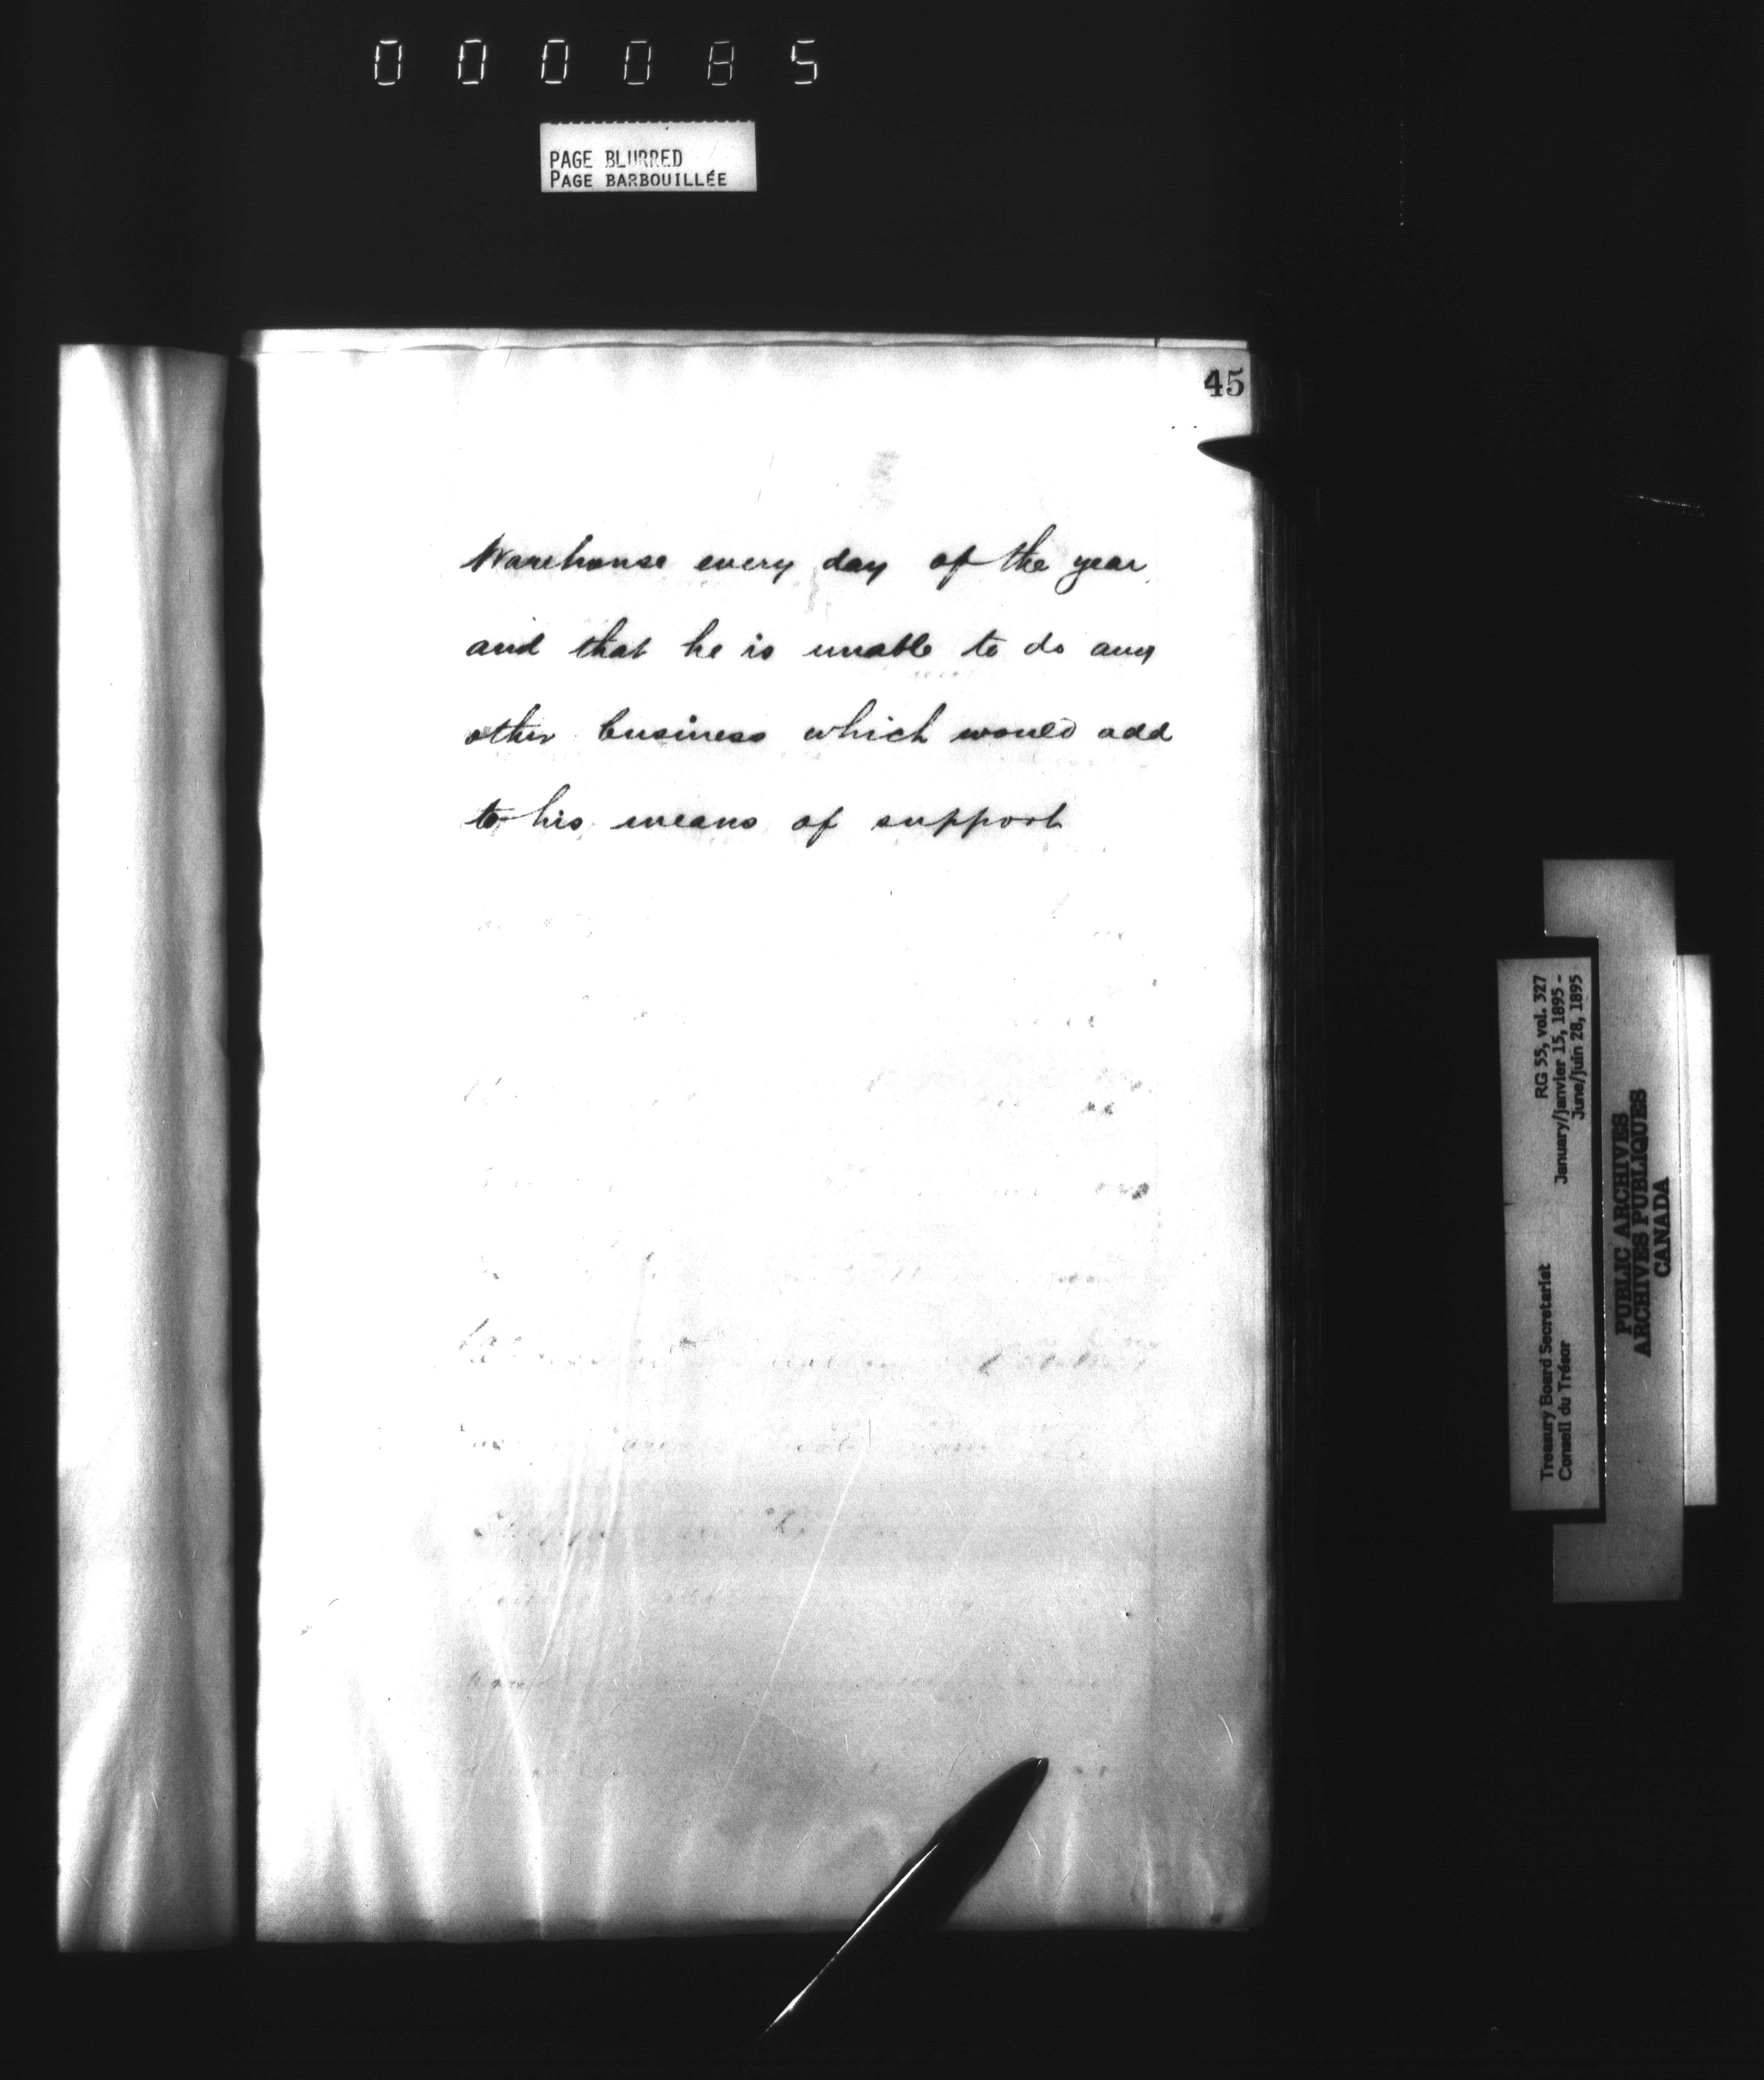 000085
PAGE BLURRED
PAGE BARBOUILLÉE
45
Warehouse every day of the year
and that he is unable to do any
other business which would add
to his means of support
RG 55, vol. 327
January/janvier 15, 1895 -
June/juin 28, 1895
Treasury Board Secretariat
Conseil du Trésor
PUBLIC ARCHIVES
ARCHIVES PUBLIQUES
CANADA